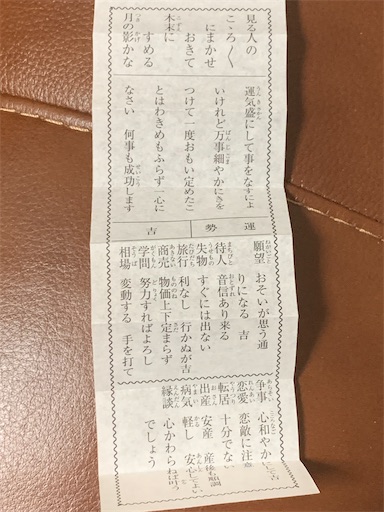 見る人の
こゝろ〱
にまかせ
おきて
木末に
すめる
月の影かな
運気盛にして事をなすによ
いけれど万事細やかにきを
つけて一度おもい定めたこ
とはわきめもふらず一心に
なさい 何事も成功します
運勢
吉
願望 おそいが思う通
りになる 吉
待人 音信あり来る
失物 すぐには出ない
旅行 利なし 行かぬが吉
商売 物価上下定まらず
学問 努力すればよろし
相場 変動する 手を打て
争事 心和やかにて吉
恋愛 恋敵に注意
転居 十分でない
出産 安産 産後も順調
病気 軽し 安心してよい
縁談 心かわらねば叶う
でしょう